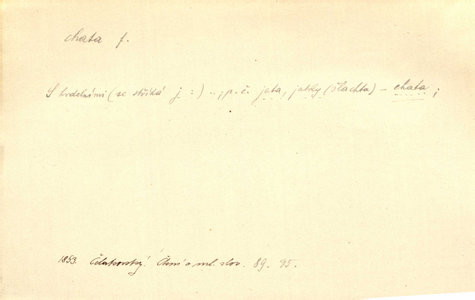 chata f.
S hrdelními (se střídá j :) ..; p. č. jata, jatky (šlachta) – chata;
1853. Čelakovský. Čtení o ml. slov. 89. 95.